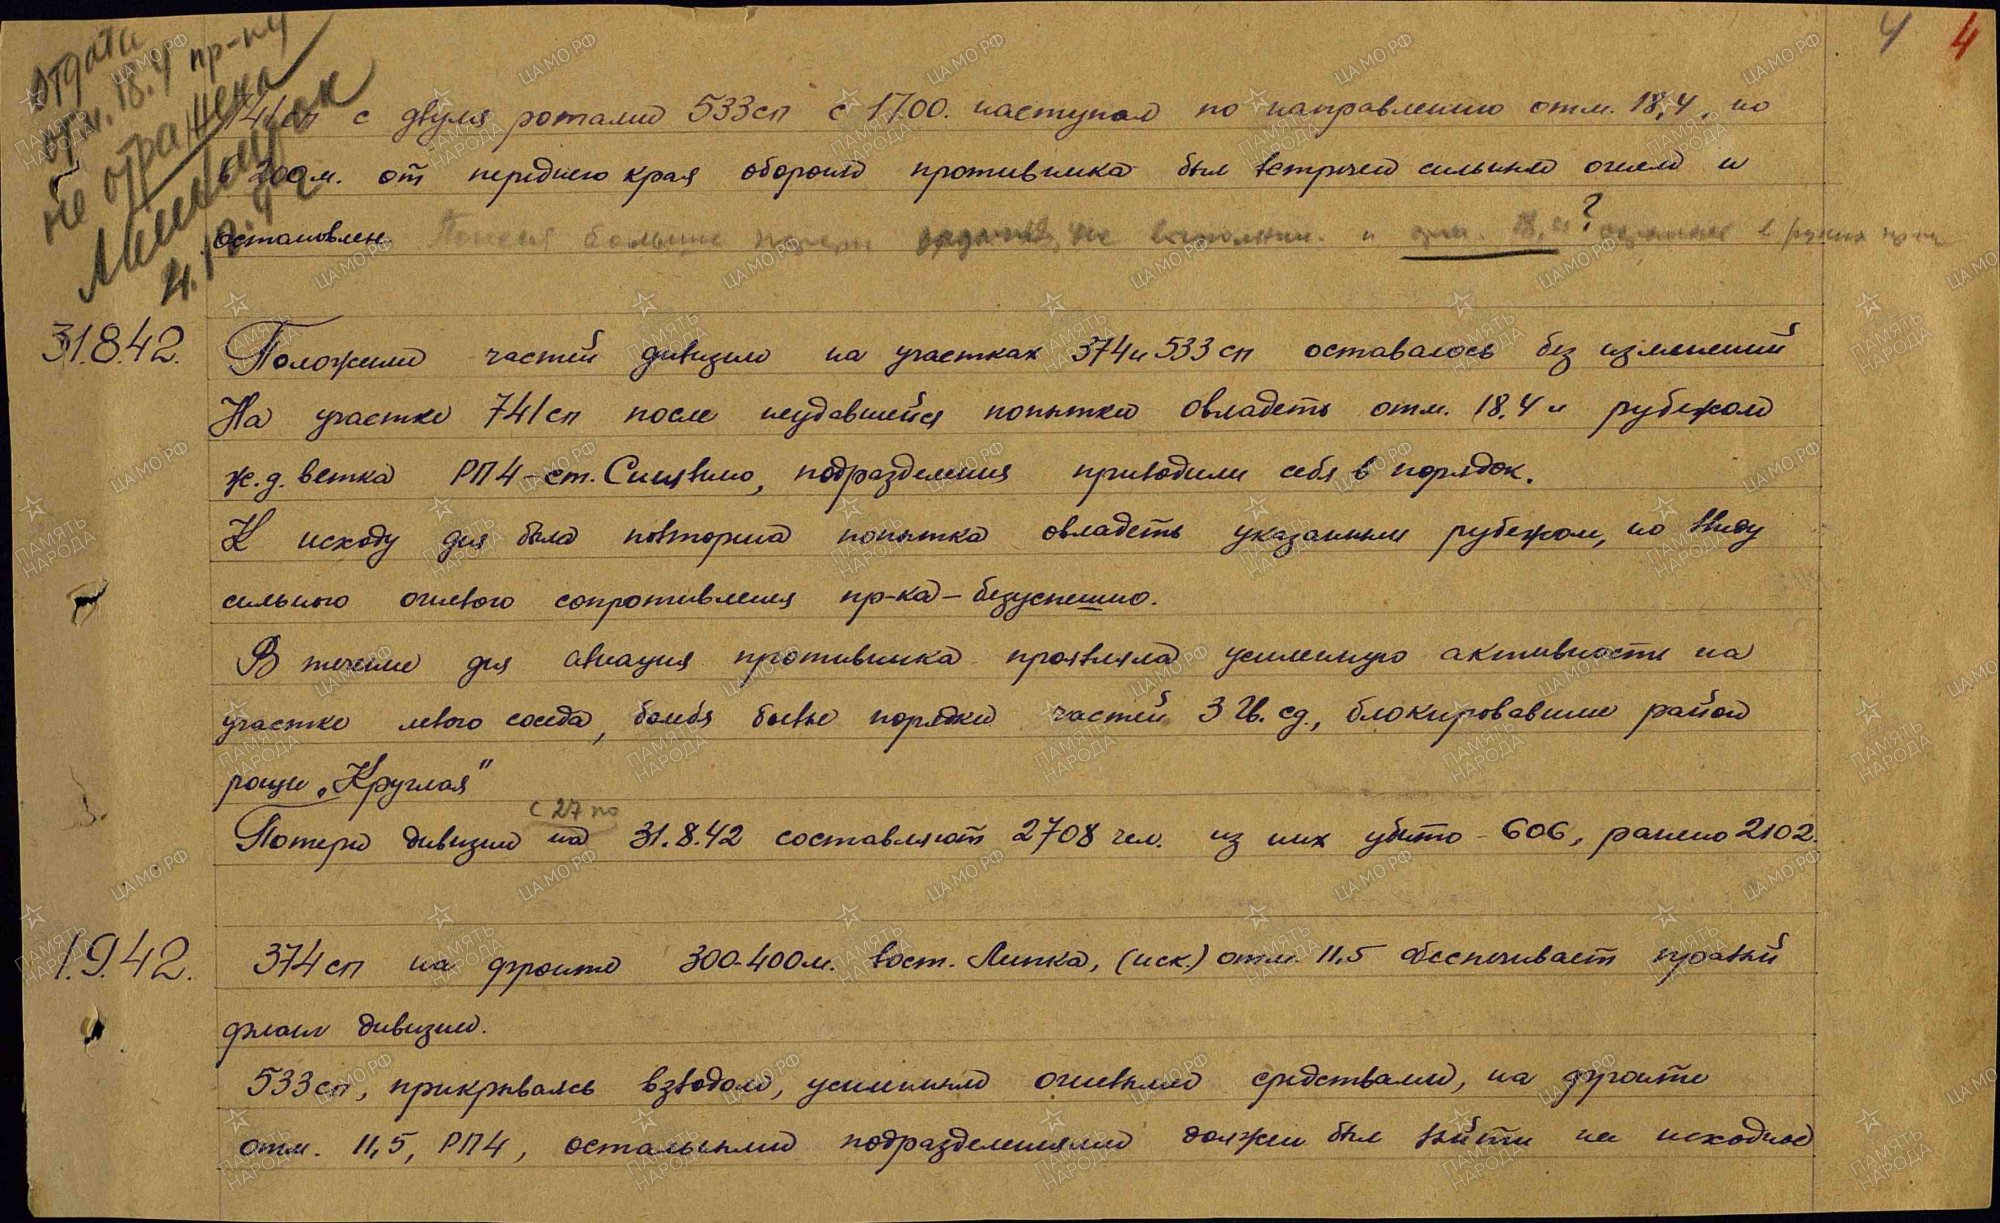 4 4
отдача
отм. 18.4 пр-ку
не отражена
4.12.42
741сп с двумя ротами 533сп с 17.00. наступал по направлению отм. 18,4, но
в 300м. от переднего края обороны противника был встречен сильным огнем и
остановлен. Понеся большие потери задачи не выполнил. и отм. 18,4? осталась в руках пр-ка
31.8.42. Положение частей дивизии на участках 374 и 533 сп оставалось без изменений
На участке 741сп после неудавшейся попытки овладеть отм. 18.4 и рубежом
ж.д. ветка РП4-ст. Синявино, подразделения приводили себя в порядок.
К исходу дня была повторена попытка овладеть указанным рубежом, но ввиду
сильного огневого сопротивления пр-ка - безуспешно.
В течение дня авиация противника проявляла усиленную активность на
участке левого соседа, бомбя боевые порядки частей 3 Гв. сд., блокировавшие район
рощи „Круглая"
с 27 по
Потери дивизии на 31.8.42 составляют 2708 чел. из них убито - 606, ранено 2102.
1.9.42. 374сп на фронте 300-400м. вост. Липка, (иск.) отм. 11,5 обеспечивает правый
фланг дивизии.
533сп, прикрываясь взводом, усиленным огневыми средствами, на фронте
отм. 11,5, РП4, остальными подразделениями должен был выйти на исходное
ПАМЯТЬ НАРОДА
ЦАМО.РФ